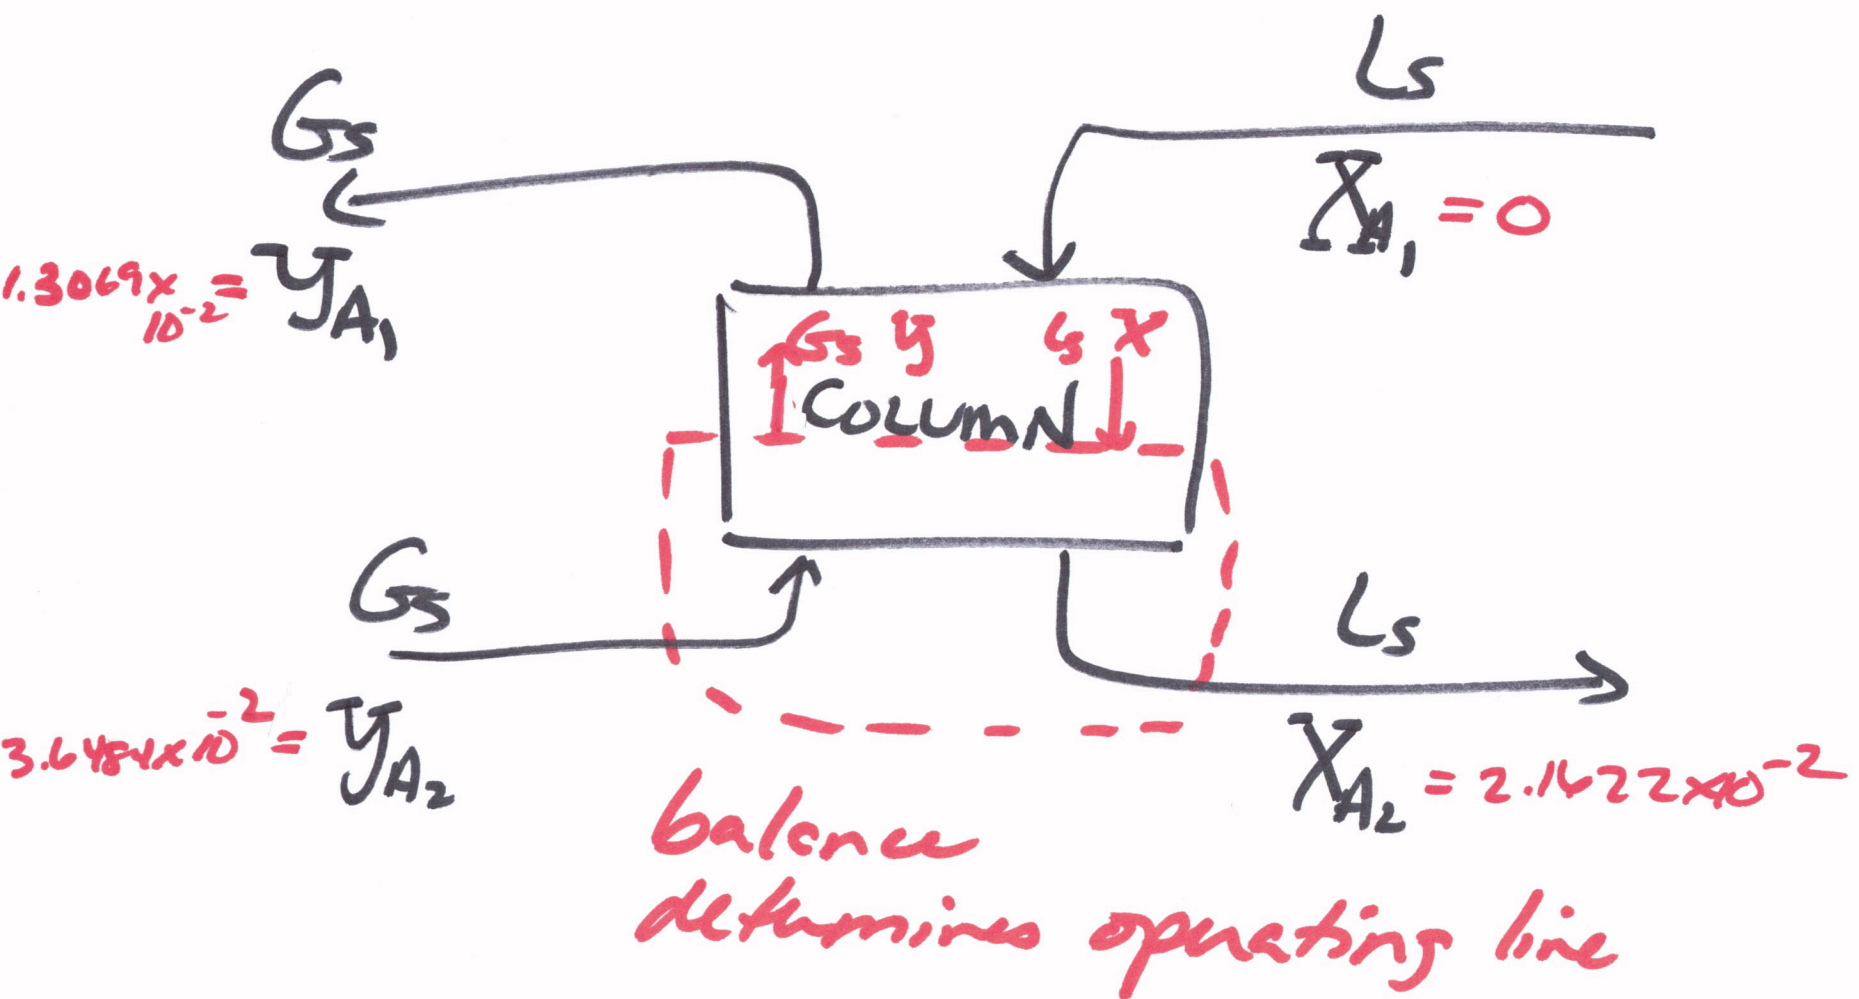 Ls
Gs
X_A₁ = 0
1.3069 x 10⁻² = Y_A₁
Gs Y Ls X
COLUMN
Gs
Ls
3.6484 x 10⁻² = Y_A₂
X_A₂ = 2.1622 x 10⁻²
balance
determines operating line